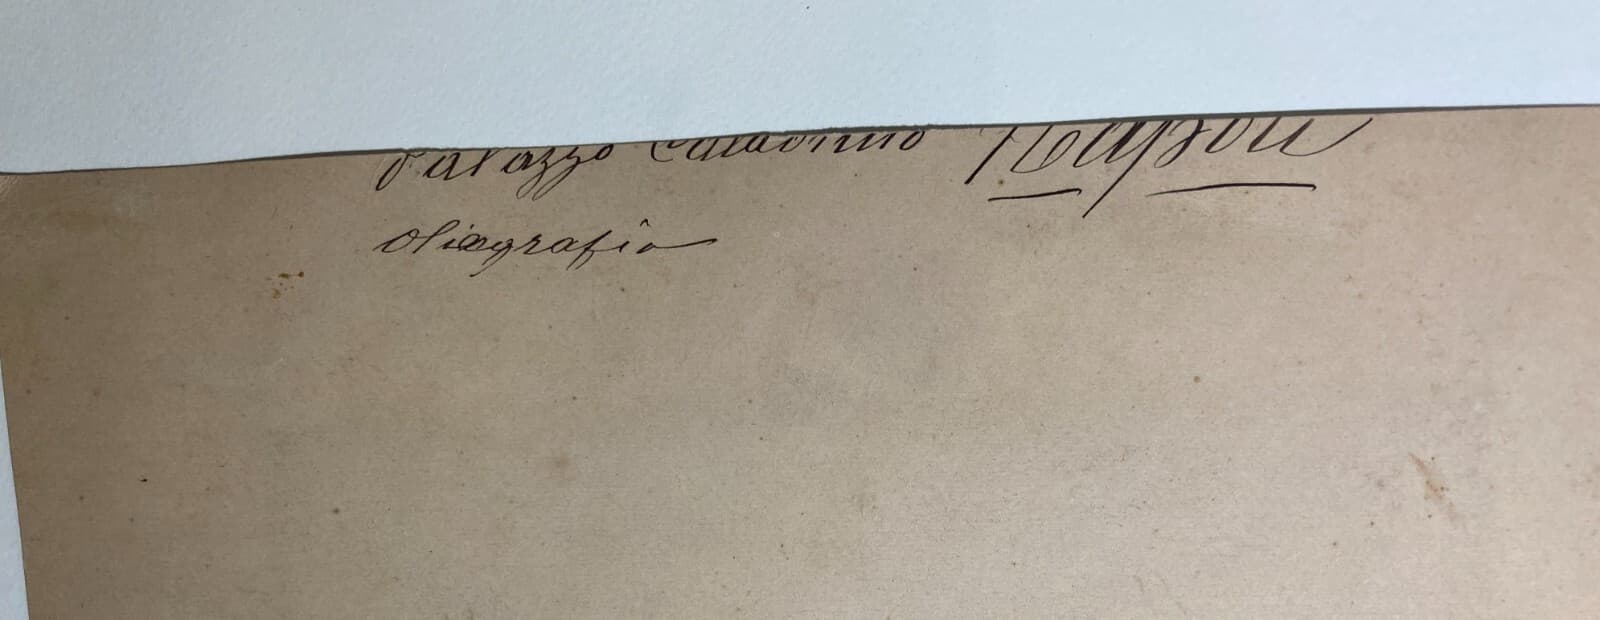 Palazzo Calabritto Napoli
Oliografia